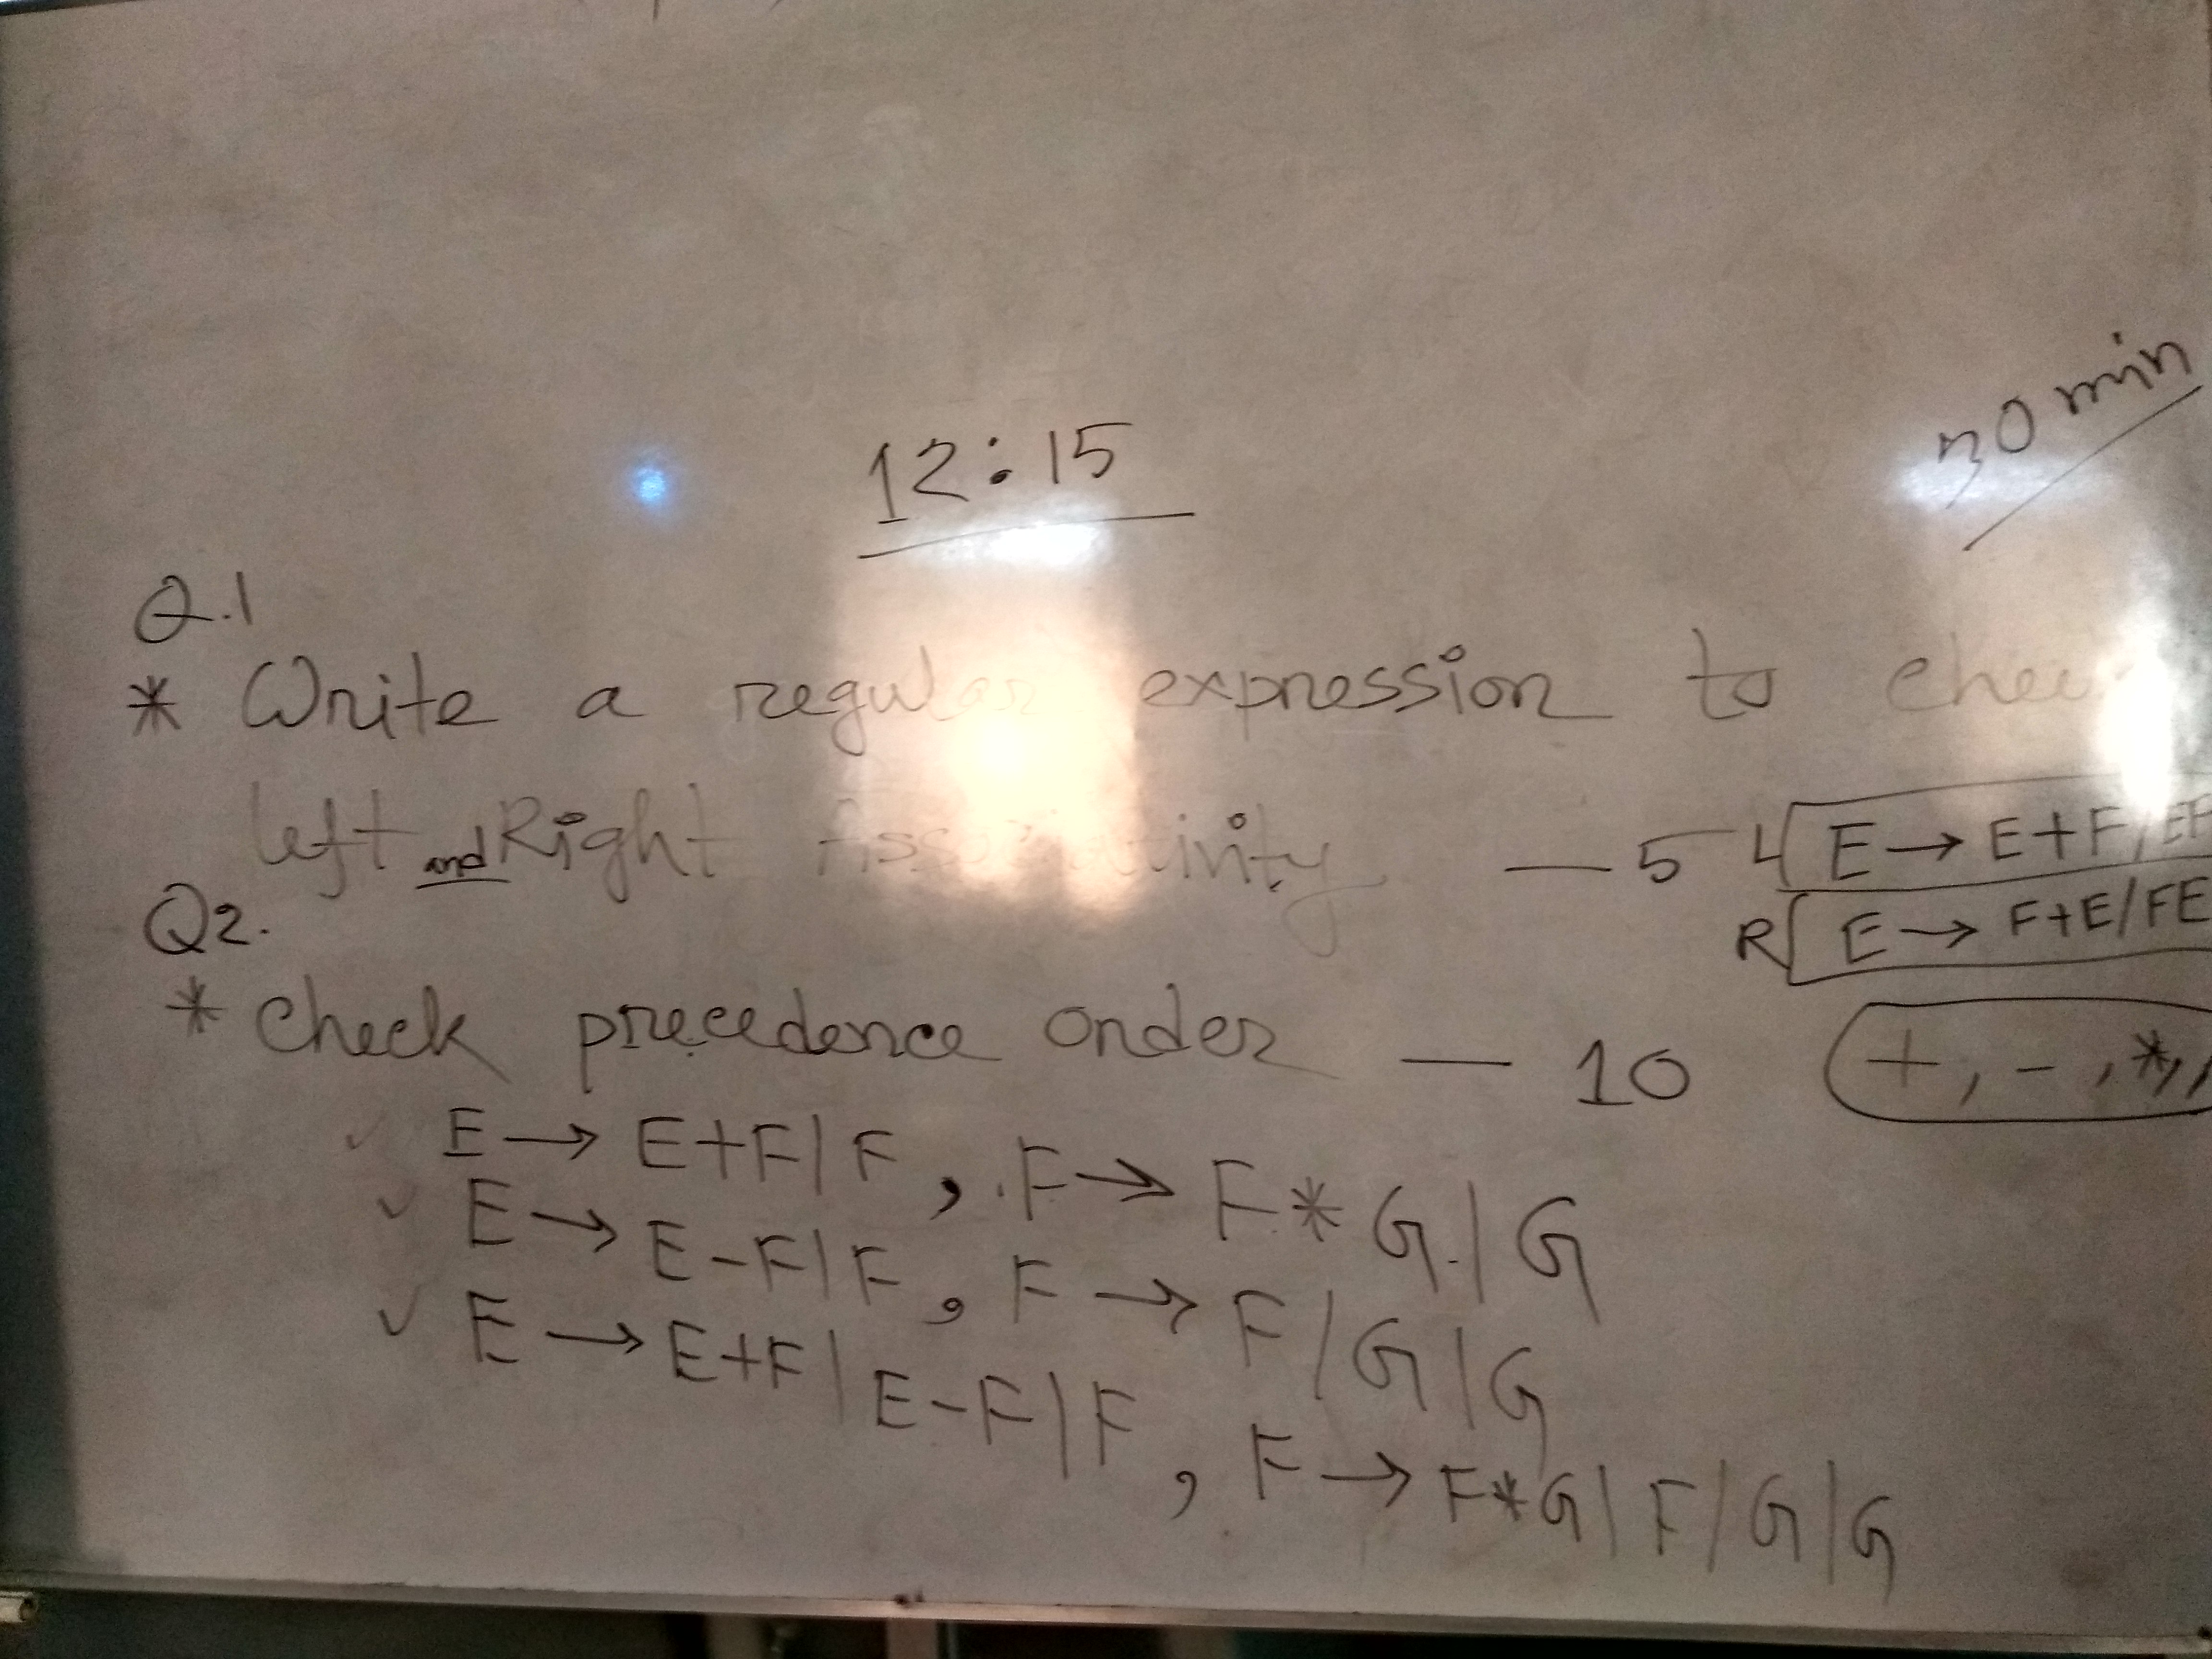 12:15
30 min
Q.1
* Write a regular expression to chec
left and Right Associativity — 5
L[ E → E+F/EF
R[ E → F+E/FE
Q2.
* check precedence order — 10
+, -, *,
✓ E → E+F|F, F → F*G|G
✓ E → E-F|F, F → F/G|G
✓ E → E+F|E-F|F, F → F*G|F/G|G